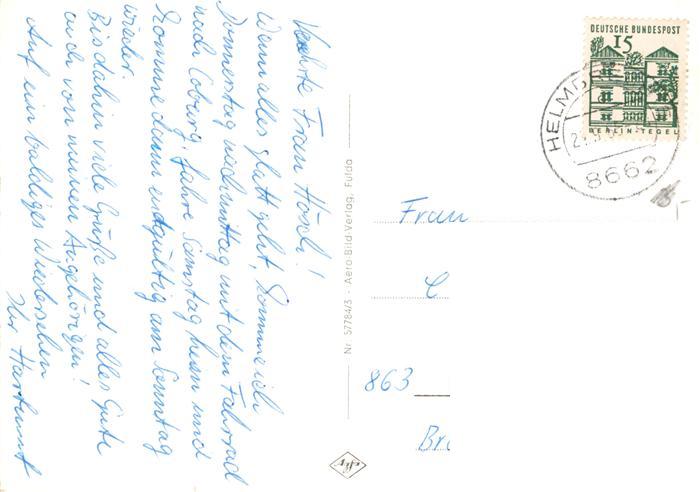 Verehrte Frau Hösch!
Wenn alles glatt geht, komme ich
Donnerstag nachmittag mit dem Fahrrad
nach Coburg, fahre Samstag heim und
komme dann endgültig am Sonntag
wieder.
Bis dahin viele Grüße und alles Gute
auch von meinen Angehörigen!
Auf ein baldiges Wiedersehen
Ihr Hartmut
Nr. 57784/3 · Aero Bild Verlag, Fulda
DEUTSCHE BUNDESPOST
15
BERLIN-TEGEL
8662
Frau
C
863